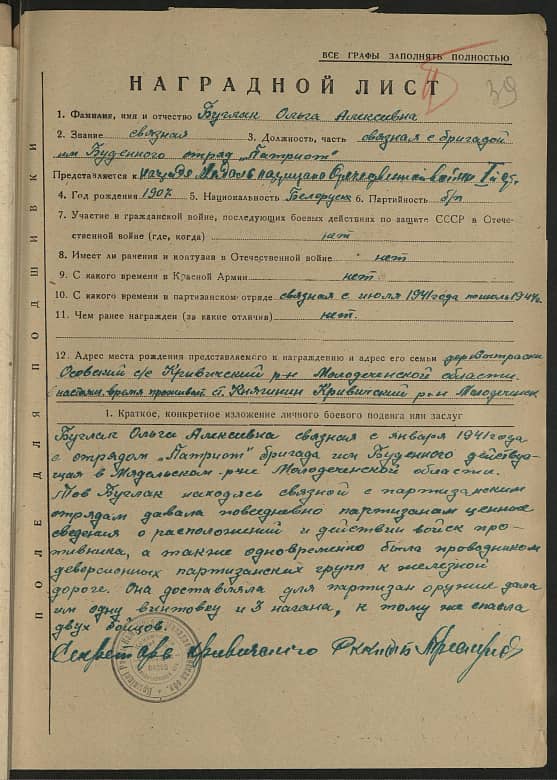 ВСЕ ГРАФЫ ЗАПОЛНЯТЬ ПОЛНОСТЬЮ
39
НАГРАДНОЙ ЛИСТ
1. Фамилия, имя и отчество Буглак Ольга Алексивна
2. Звание связная 3. Должность, часть связная с бригадой
им Буденного отряд „Патриот"
Представляется к награде Медаль партизана Отечественной войны II й ст.
4. Год рождения 1907 5. Национальность Белоруск 6. Партийность б/п
7. Участие в гражданской войне, последующих боевых действиях по защите СССР в Отече-
ственной войне (где, когда) нет
8. Имеет ли ранения и контузия в Отечественной войне нет
9. С какого времени в Красной Армии нет
10. С какого времени в партизанском отряде связная с июля 1941 года по июль 1944г.
11. Чем ранее награжден (за какие отличия) нет.
12. Адрес места рождения представляемого к награждению и адрес его семьи дер
Осовский с/с Кривичский р-н Молодеченской области.
настоящ. время проживает ст. Княгинин Кривичский р-н Молодечинск
1. Краткое, конкретное изложение личного боевого подвига или заслуг
Буглак Ольга Алексивна связная с января 1941 года
с отрядом „Патриот" бригада им Буденного действую-
щая в Мядельском р-не Молодеченской области.
Тов Буглак находясь связной с партизанским
отрядам давала повседневно партизанам ценные
сведения о расположений и действии войск про-
тивника, а также одновременно была проводником
деверсионных партизанских групп к железной
дороге. Она доставляла для партизан оружие дала
им одну винтовку и 3 нагана, к тому же спасла
двух бойцов.
Секретарь Кривичского РК КП(б)Б
ПОЛЕ ДЛЯ ПОДШИВКИ